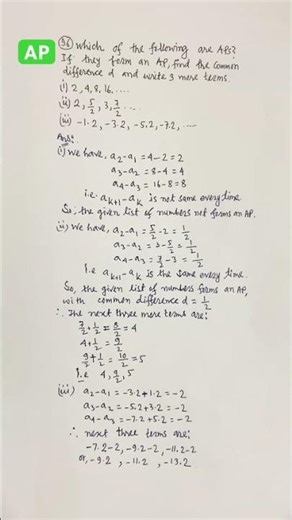 AP
36 which of the following are APs?
If they form an AP, find the common
difference d and write 3 more terms.
(i) 2, 4, 8, 16, ....
(ii) 2, 5/2, 3, 7/2, ....
(iii) -1.2, -3.2, -5.2, -7.2, ....
Ans:
(i) we have, a₂-a₁ = 4-2 = 2
a₃-a₂ = 8-4 = 4
a₄-a₃ = 16-8 = 8
i.e aₖ₊₁-aₖ is not same every time
So, the given list of numbers not forms an AP.
ii) We have, a₂-a₁ = 5/2 - 2 = 1/2
a₃-a₂ = 3-5/2 = 1/2
a₄-a₃ = 7/2 - 3 = 1/2
I.e aₖ₊₁-aₖ is the same every time.
So, the given list of numbers forms an AP,
with common difference d = 1/2
∴ The next three more terms are:
7/2 + 1/2 = 8/2 = 4
4 + 1/2 = 9/2
9/2 + 1/2 = 10/2 = 5
I.e 4, 9/2, 5
(iii) a₂-a₁ = -3.2+1.2 = -2
a₃-a₂ = -5.2+3.2 = -2
a₄-a₃ = -7.2+5.2 = -2
∴ next three terms are:
-7.2-2, -9.2-2, -11.2-2
or, -9.2, -11.2, -13.2